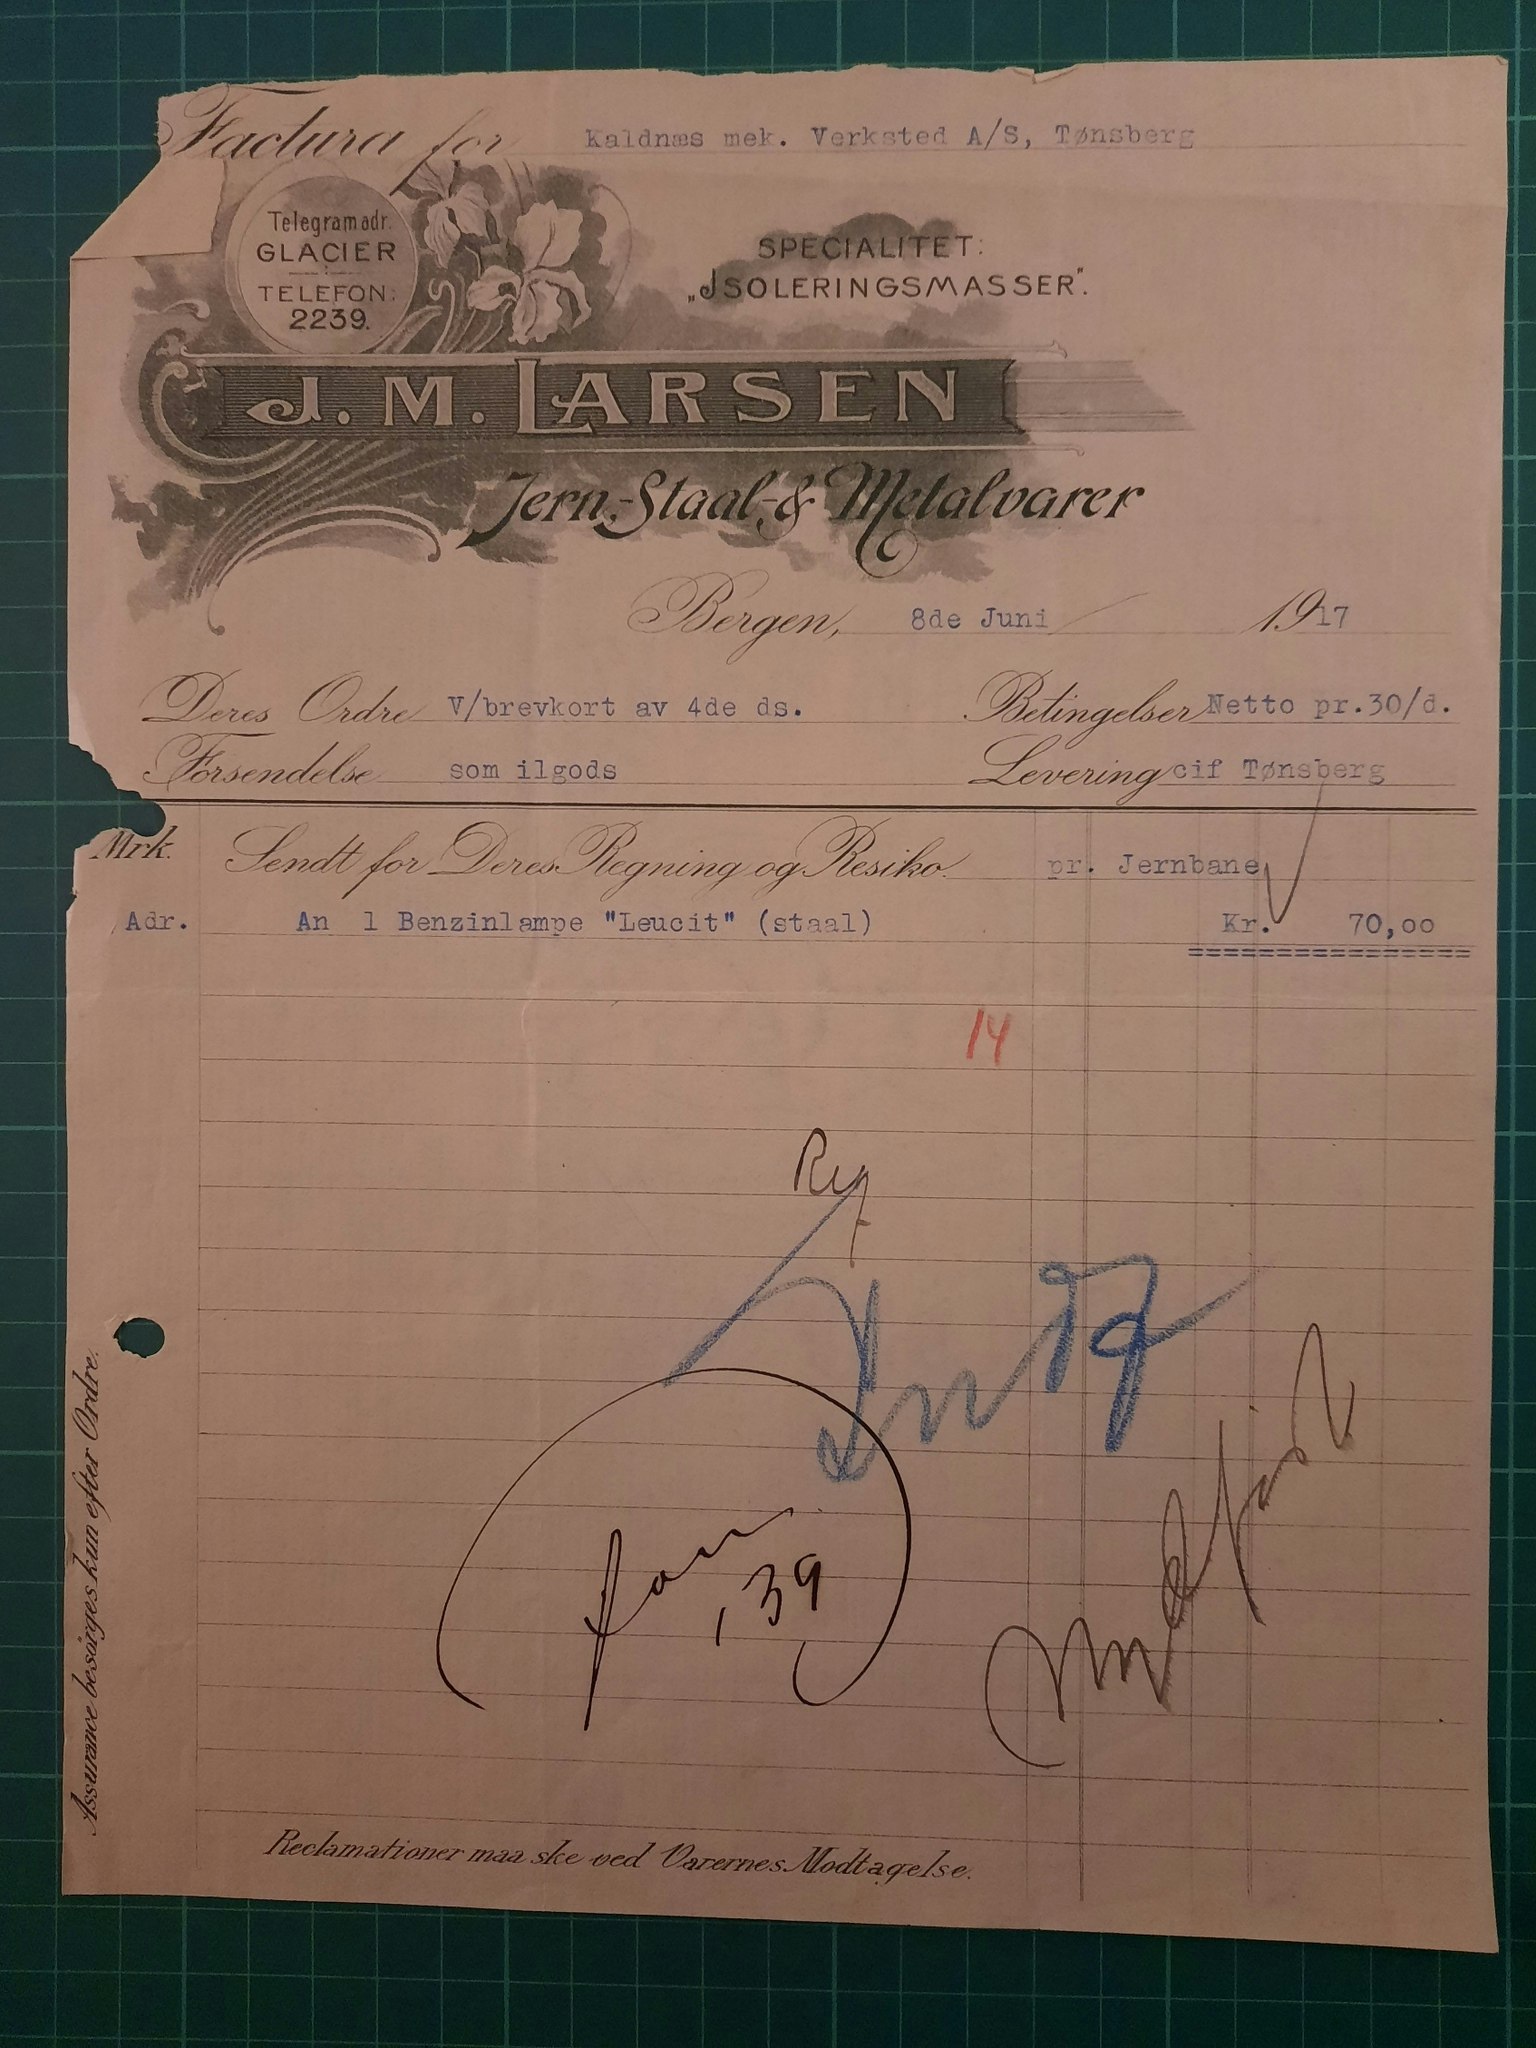 Factura for Kaldnæs mek. Verksted A/S, Tønsberg
Telegramadr.
GLACIER
TELEFON:
2239.
SPECIALITET:
„JSOLERINGSMASSER".
J. M. LARSEN
Jern,-Staal-& Metalvarer
Bergen, 8de Juni 1917
Deres Ordre V/brevkort av 4de ds. Betingelser Netto pr.30/d.
Forsendelse som ilgods Levering cif Tønsberg
Mrk. Sendt for Deres Regning og Resiko. pr. Jernbane
Adr. An 1 Benzinlampe "Leucit" (staal) Kr. 70,00
14
139
Assurance besörges kun efter Ordre.
Reclamationer maa ske ved Varernes Modtagelse.